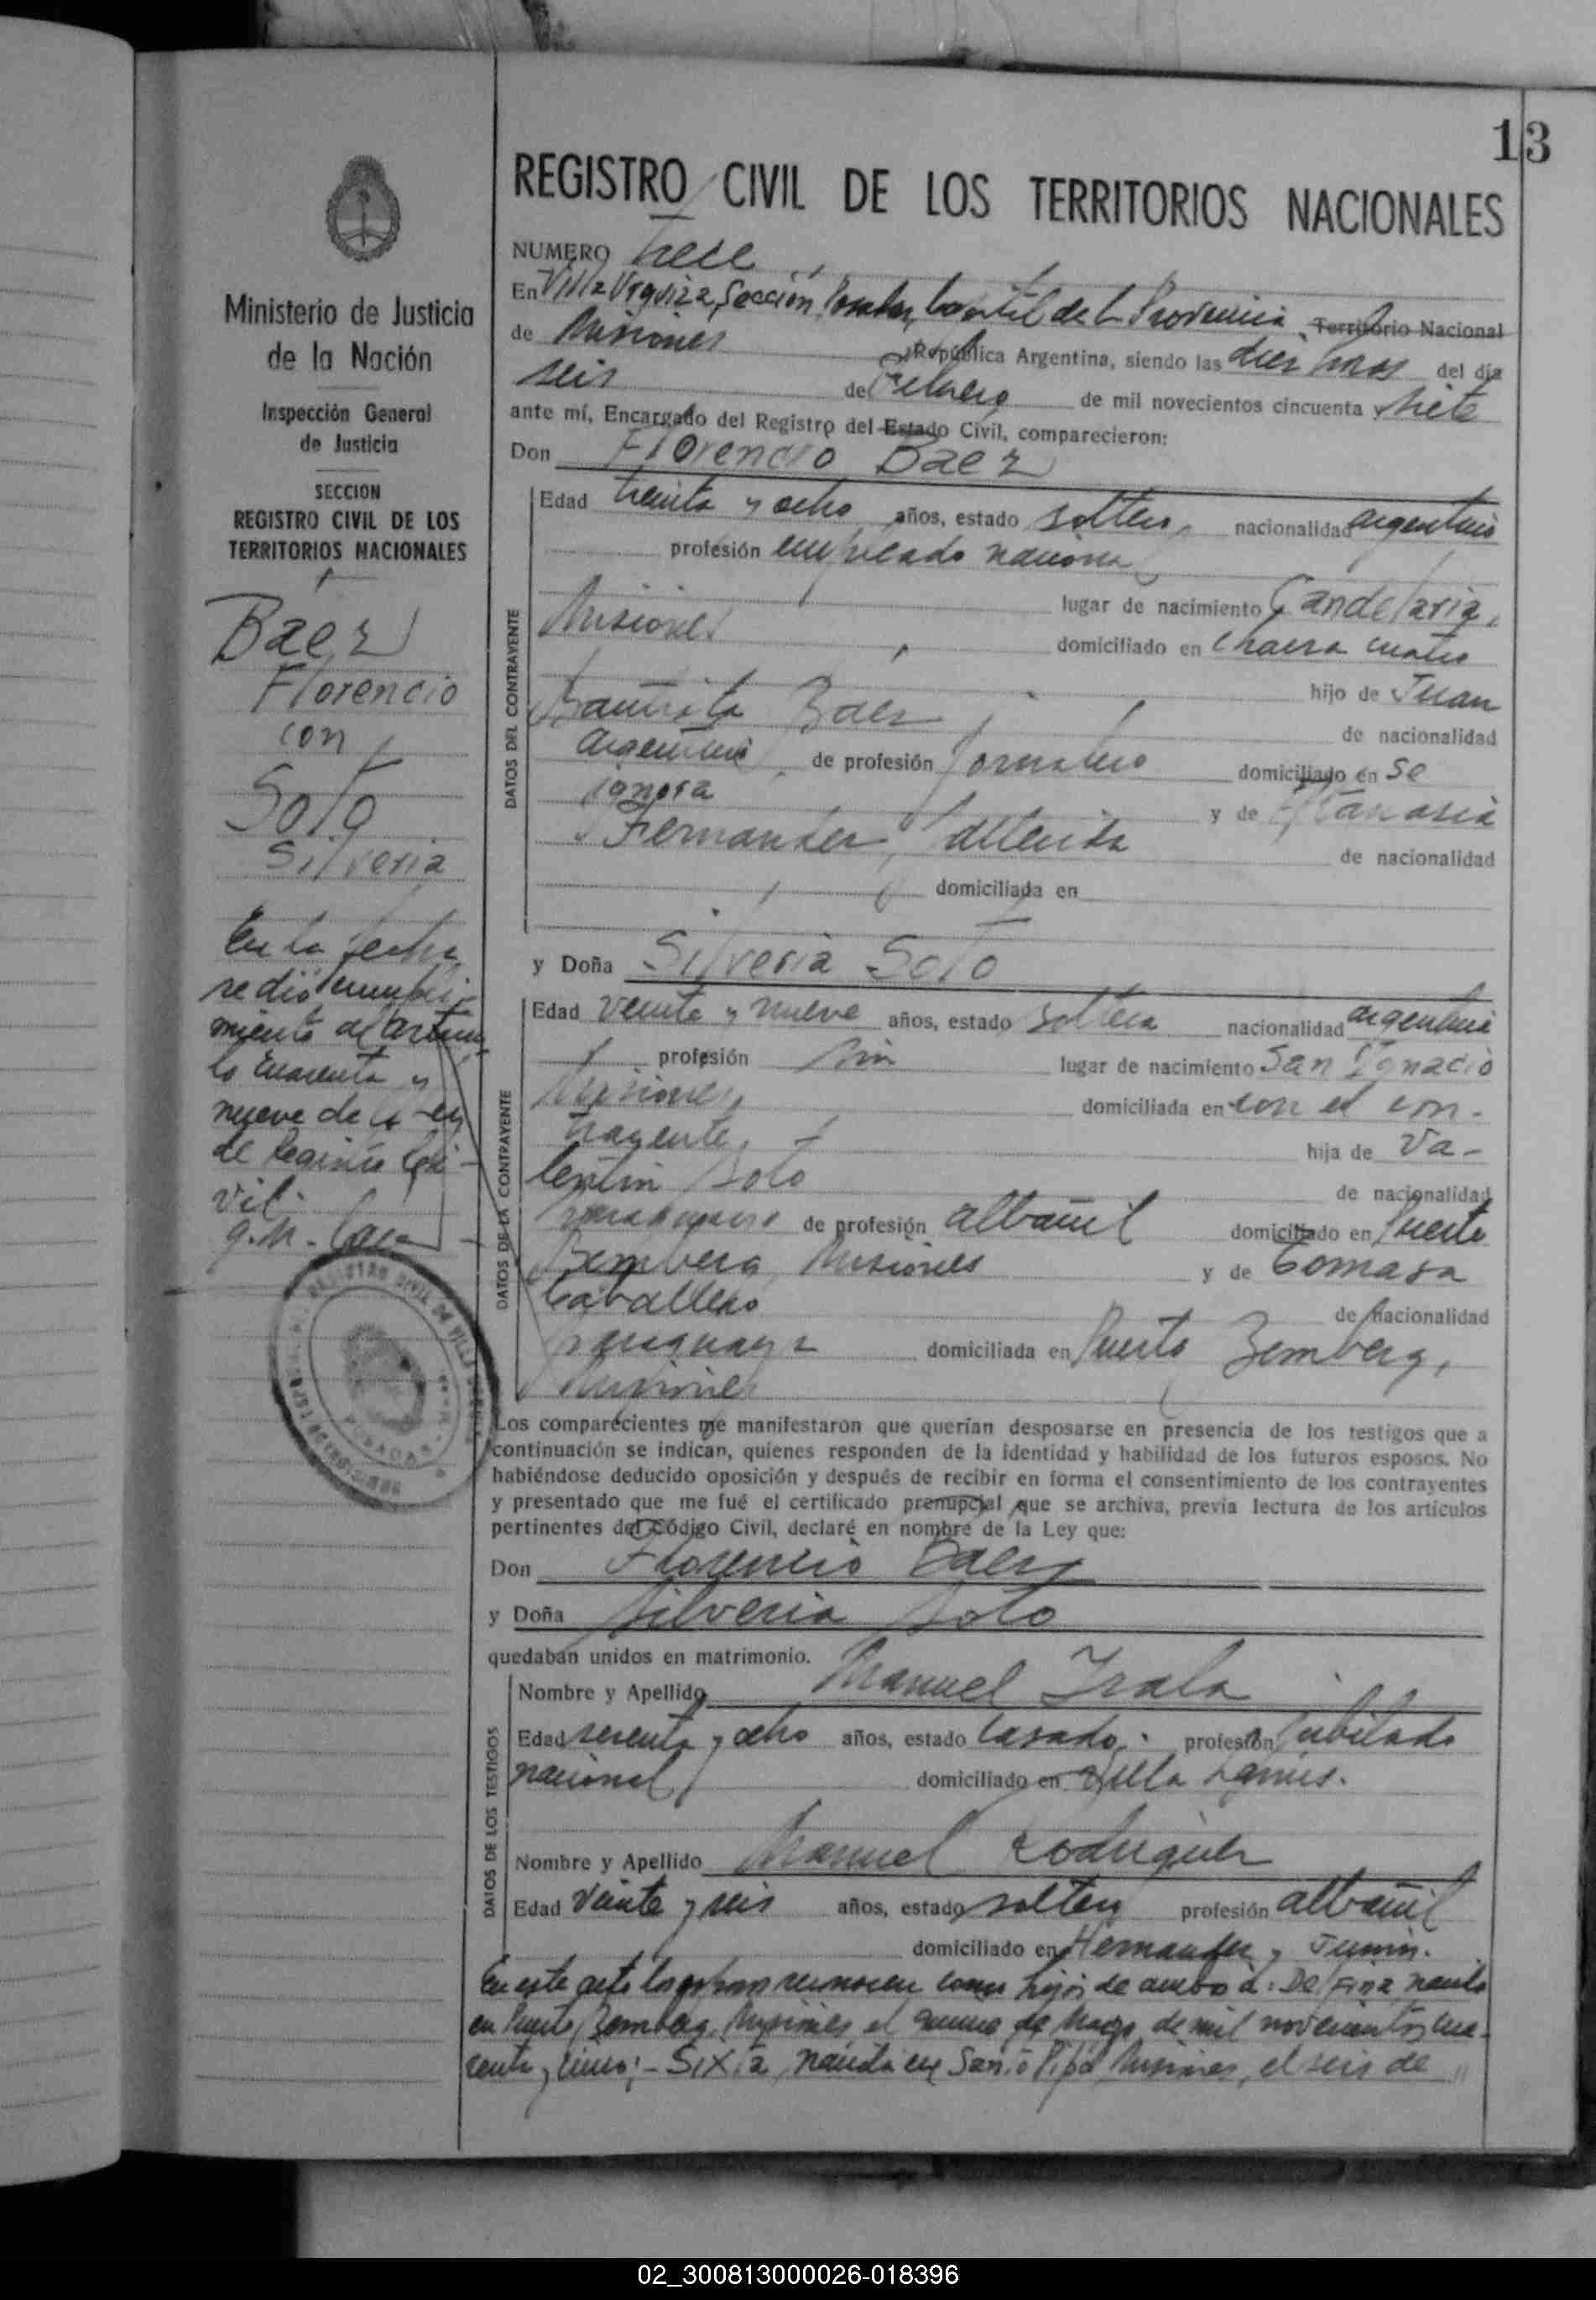 13
REGISTRO CIVIL DE LOS TERRITORIOS NACIONALES
Ministerio de Justicia
de la Nación
Inspección General
de Justicia
SECCION
REGISTRO CIVIL DE LOS
TERRITORIOS NACIONALES
Baez
Florencio
con
Soto
Silveria
En la fecha
se dió cumpli-
miento al artícu-
lo cuarenta y
nueve de la ley
de Registro Ci-
vil.
NUMERO trece
En Villa Urquiza, Sección Posadas, Capital de la Provincia Territorio Nacional
de Misiones República Argentina, siendo las diez horas del día
seis de Febrero de mil novecientos cincuenta y siete
ante mí, Encargado del Registro del Estado Civil, comparecieron:
Don Florencio Baez
DATOS DEL CONTRAYENTE
Edad treinta y ocho años, estado soltero, nacionalidad argentino
profesión empleado nacional
lugar de nacimiento Candelaria,
Misiones domiciliado en Chacra cuatro
hijo de Juan
Bautista Baez de nacionalidad
argentino de profesión Jornalero domiciliado en se
ignora y de Atanasia
Fernandez, fallecida de nacionalidad
domiciliada en
y Doña Silveria Soto
DATOS DE LA CONTRAYENTE
Edad veinte y nueve años, estado soltera nacionalidad argentina
profesión sin lugar de nacimiento San Ignacio
Misiones, domiciliada en con el con-
trayente, hija de Va-
lentin Soto de nacionalidad
paraguayo de profesión albañil domiciliado en Puerto
Bemberg, Misiones y de Tomasa
Caballero de nacionalidad
paraguaya domiciliada en Puerto Bemberg,
Misiones
Los comparecientes me manifestaron que querían desposarse en presencia de los testigos que a
continuación se indican, quienes responden de la identidad y habilidad de los futuros esposos. No
habiéndose deducido oposición y después de recibir en forma el consentimiento de los contrayentes
y presentado que me fué el certificado prenupcial que se archiva, previa lectura de los artículos
pertinentes del Código Civil, declaré en nombre de la Ley que:
Don Florencio Baez
y Doña Silveria Soto
quedaban unidos en matrimonio.
DATOS DE LOS TESTIGOS
Nombre y Apellido Manuel Irala
Edad sesenta y ocho años, estado casado, profesión Jubilado
nacional domiciliado en Villa Lanus.
Nombre y Apellido Manuel Rodriguez
Edad veinte y seis años, estado soltero profesión albañil
domiciliado en Hernandez y Junin.
En este acto los esposos reconocen como hijos de ambos a: Delfina, nacida
en Puerto Bemberg, Misiones el quince de Mayo de mil novecientos cua-
renta y cinco; - Sixta, nacida en Santo Pipó, Misiones, el seis de
02_300813000026-018396